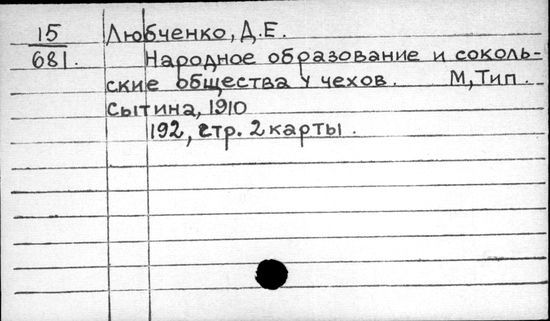 15 Любченко, Д.Е.
681. Народное образование и соколь-
ские общества у чехов. М, Тип.
Сытина, 1910
192, стр. 2 карты.